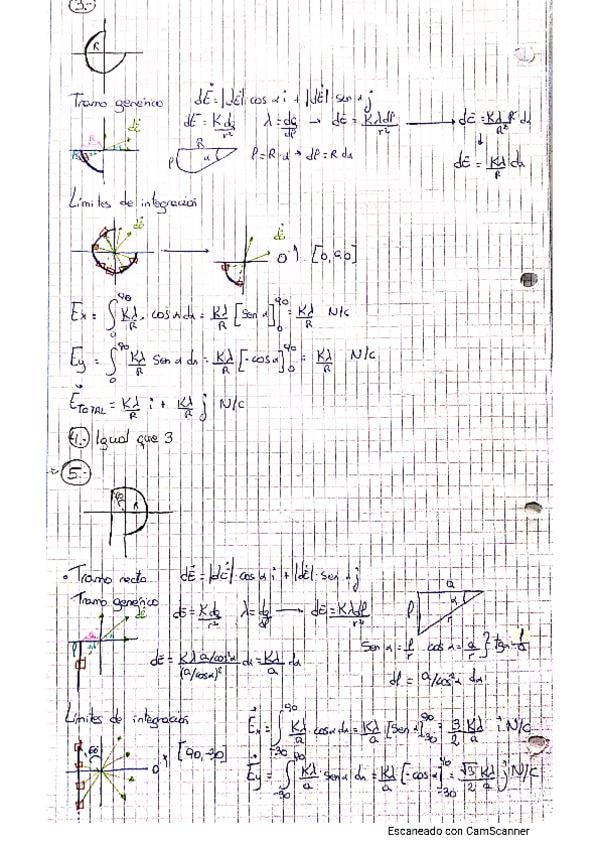 3.-
R
Tramo generico
dE = |dE| · cos α i + |dE| · sen α j
dE = K dq / r² λ = dq / dl → dE = Kλdl / r² → dE = Kλ R dα / R²
R dE R l α l = R · α → dl = R dα dE = Kλ / R dα
Límites de integración
dE
0º [0, 90]
Ex = ∫₀⁹⁰ Kλ/R · cos α dα = Kλ/R [sen α]₀⁹⁰ = Kλ/R N/C
Ey = ∫₀⁹⁰ Kλ/R sen α dα = Kλ/R [-cos α]₀⁹⁰ = Kλ/R N/C
E TOTAL = Kλ/R i + Kλ/R j N/C
4.- Igual que 3
5.-
R
• Tramo recto
dE = |dE| · cos α i + |dE| · sen α j
Tramo generico
dE = K dq / r² λ = dq / dl → dE = Kλdl / r²
dE a l α r
dE = Kλ a/cos²α / (a/cos α)² dα = Kλ/a dα
sen α = l/r cos α = a/r } tan = l/a
dl = a/cos²α dα
Límites de integración
60 0º [90, -30]
Ex = ∫₋₃₀⁹⁰ Kλ/a · cos α dα = Kλ/a [sen α]₋₃₀⁹⁰ = 3/2 Kλ/a i N/C
Ey = ∫₋₃₀⁹⁰ Kλ/a · sen α dα = Kλ/a [-cos α]₋₃₀⁹⁰ = √3/2 Kλ/a j N/C
Escaneado con CamScanner